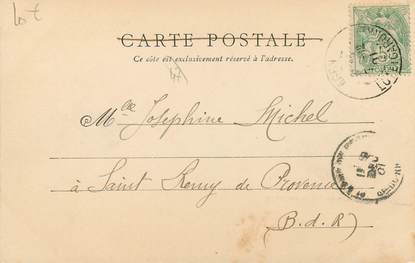 Lot
CARTE POSTALE
Ce côté est exclusivement réservé à l'adresse.
Mlle Josephine Michel
à Saint Remy de Provence
(B.d.R)